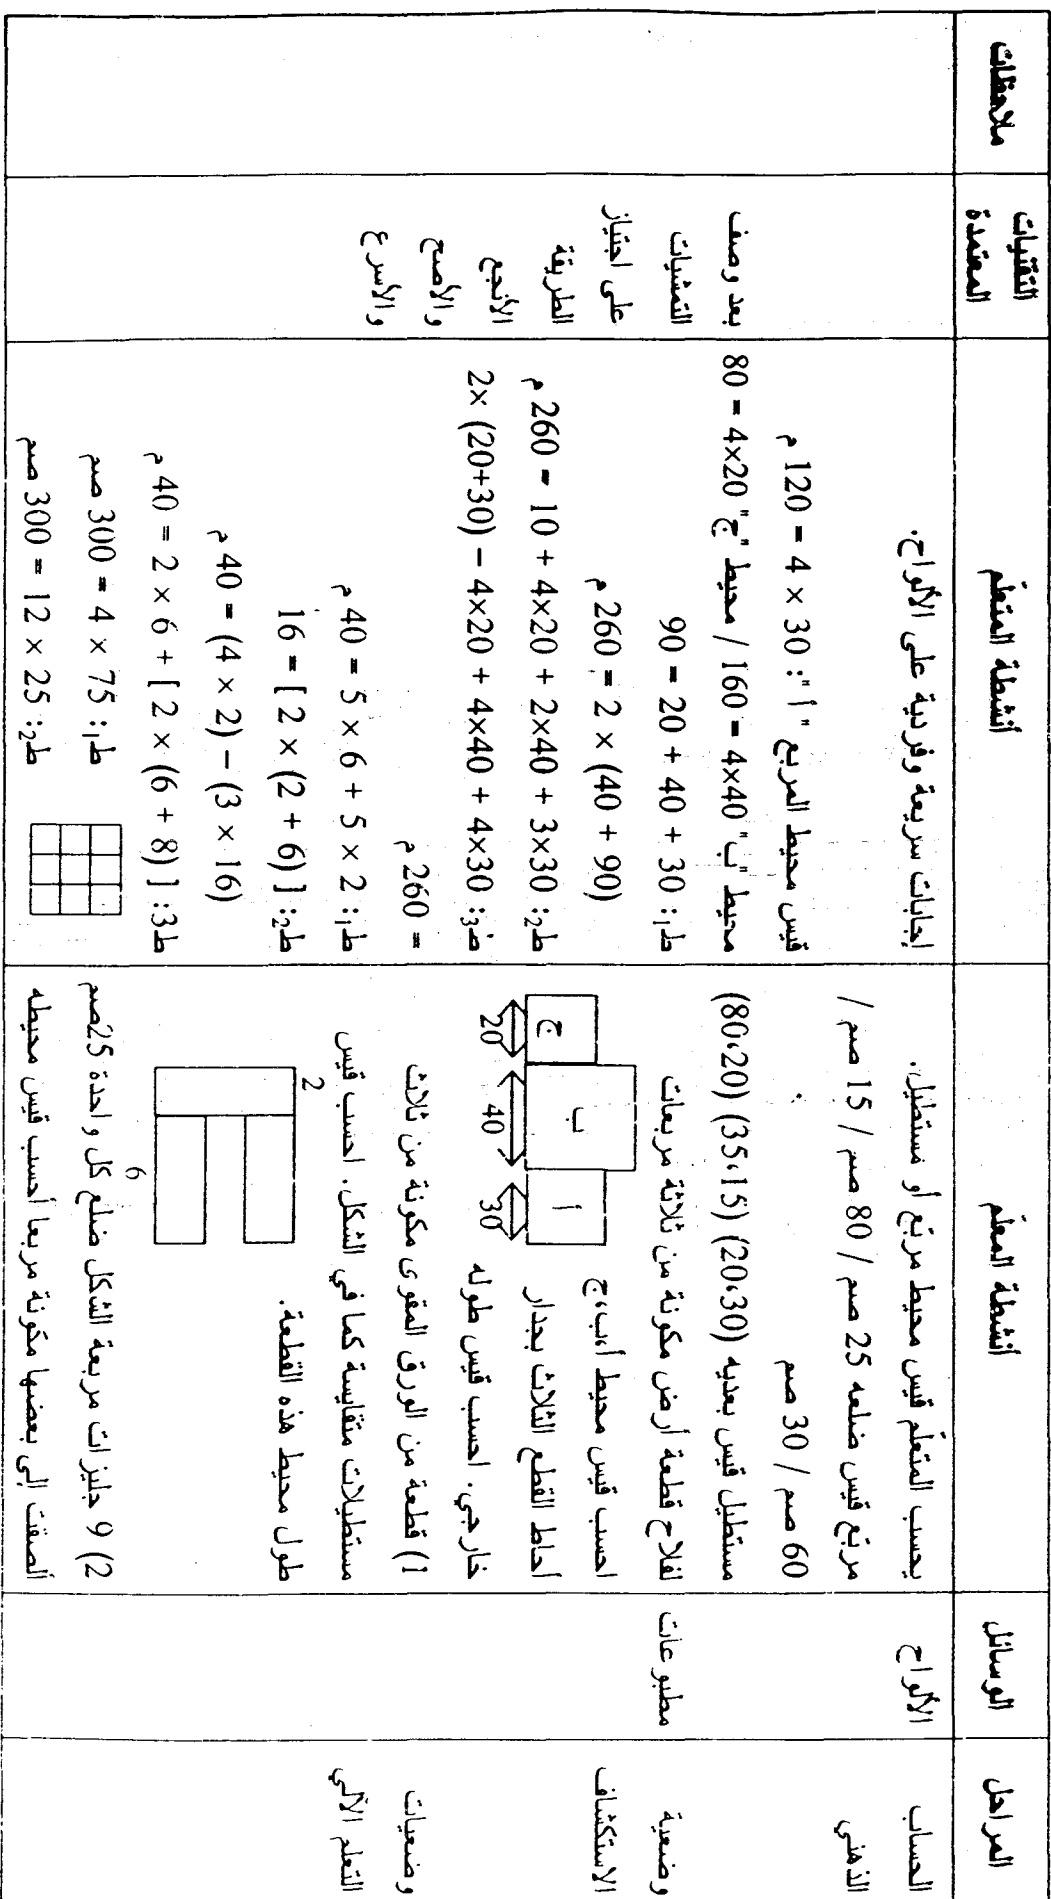 المراحل
الوسائل
أنشطة المعلّم
أنشطة المتعلّم
التقنيات المعتمدة
ملاحظات
الحساب
الذهني
الألواح
يحسب المتعلّم قيس محيط مربّع أو مستطيل.
مربّع قيس ضلعه 25 صم / 80 صم / 15 صم /
60 صم / 30 صم
مستطيل قيس بعديه (20،30) (35،15) (80،20)
إجابات سريعة وفردية على الألواح.
وضعية
الاستكشاف
مطبوعات
لفلاح قطعة أرض مكونة من ثلاثة مربعات
احسب قيس محيط أ،ب،ج
أحاط القطع الثلاث بجدار
خارجي. احسب قيس طوله
أ
ب
ج
30
40
20
قيس محيط المربع "أ": 30 × 4 = 120 م
محيط "ب" 40×4 = 160 / محيط "ج" 20×4 = 80
ط1: 30 + 40 + 20 = 90
(90 + 40) × 2 = 260 م
ط2: 30×3 + 40×2 + 20×4 + 10 = 260 م
ط3: 30×4 + 40×4 + 20×4 – (30+20) ×2
= 260 م
بعد وصف
التمشيات
على اجتياز
الطريقة
الأنجع
والأصح
والأسرع
وضعيات
التعلم الآلي
1) قطعة من الورق المقوى مكونة من ثلاث
مستطيلات متقايسة كما في الشكل. احسب قيس
طول محيط هذه القطعة.
2
6
ط1: 2 × 5 + 6 × 5 = 40 م
ط2: [ (6 + 2) × 2 ] = 16
(16 × 3) – (2 × 4) = 40 م
ط3: [ (8 + 6) × 2 ] + 6 × 2 = 40 م
2) 9 جليزات مربعة الشكل ضلع كل واحدة 25صم
ألصقت إلى بعضها مكونة مربعا أحسب قيس محيطه
ط1: 75 × 4 = 300 صم
ط2: 25 × 12 = 300 صم